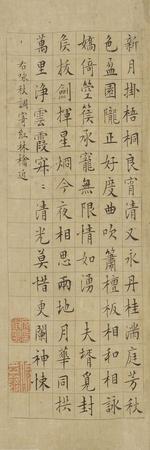 新月掛梧桐良宵清又永丹桂滿庭芳秋
色盈園隴正好度曲吹簫檀板相和相詠
嬌倚箜篌承寵無限情如湧 夫壻覓封
侯拔劍揮星炯今夜相思兩地月華同拱
萬里淨雲霞寂二清光莫惜更闌神悚
右 調寄紅林檎近